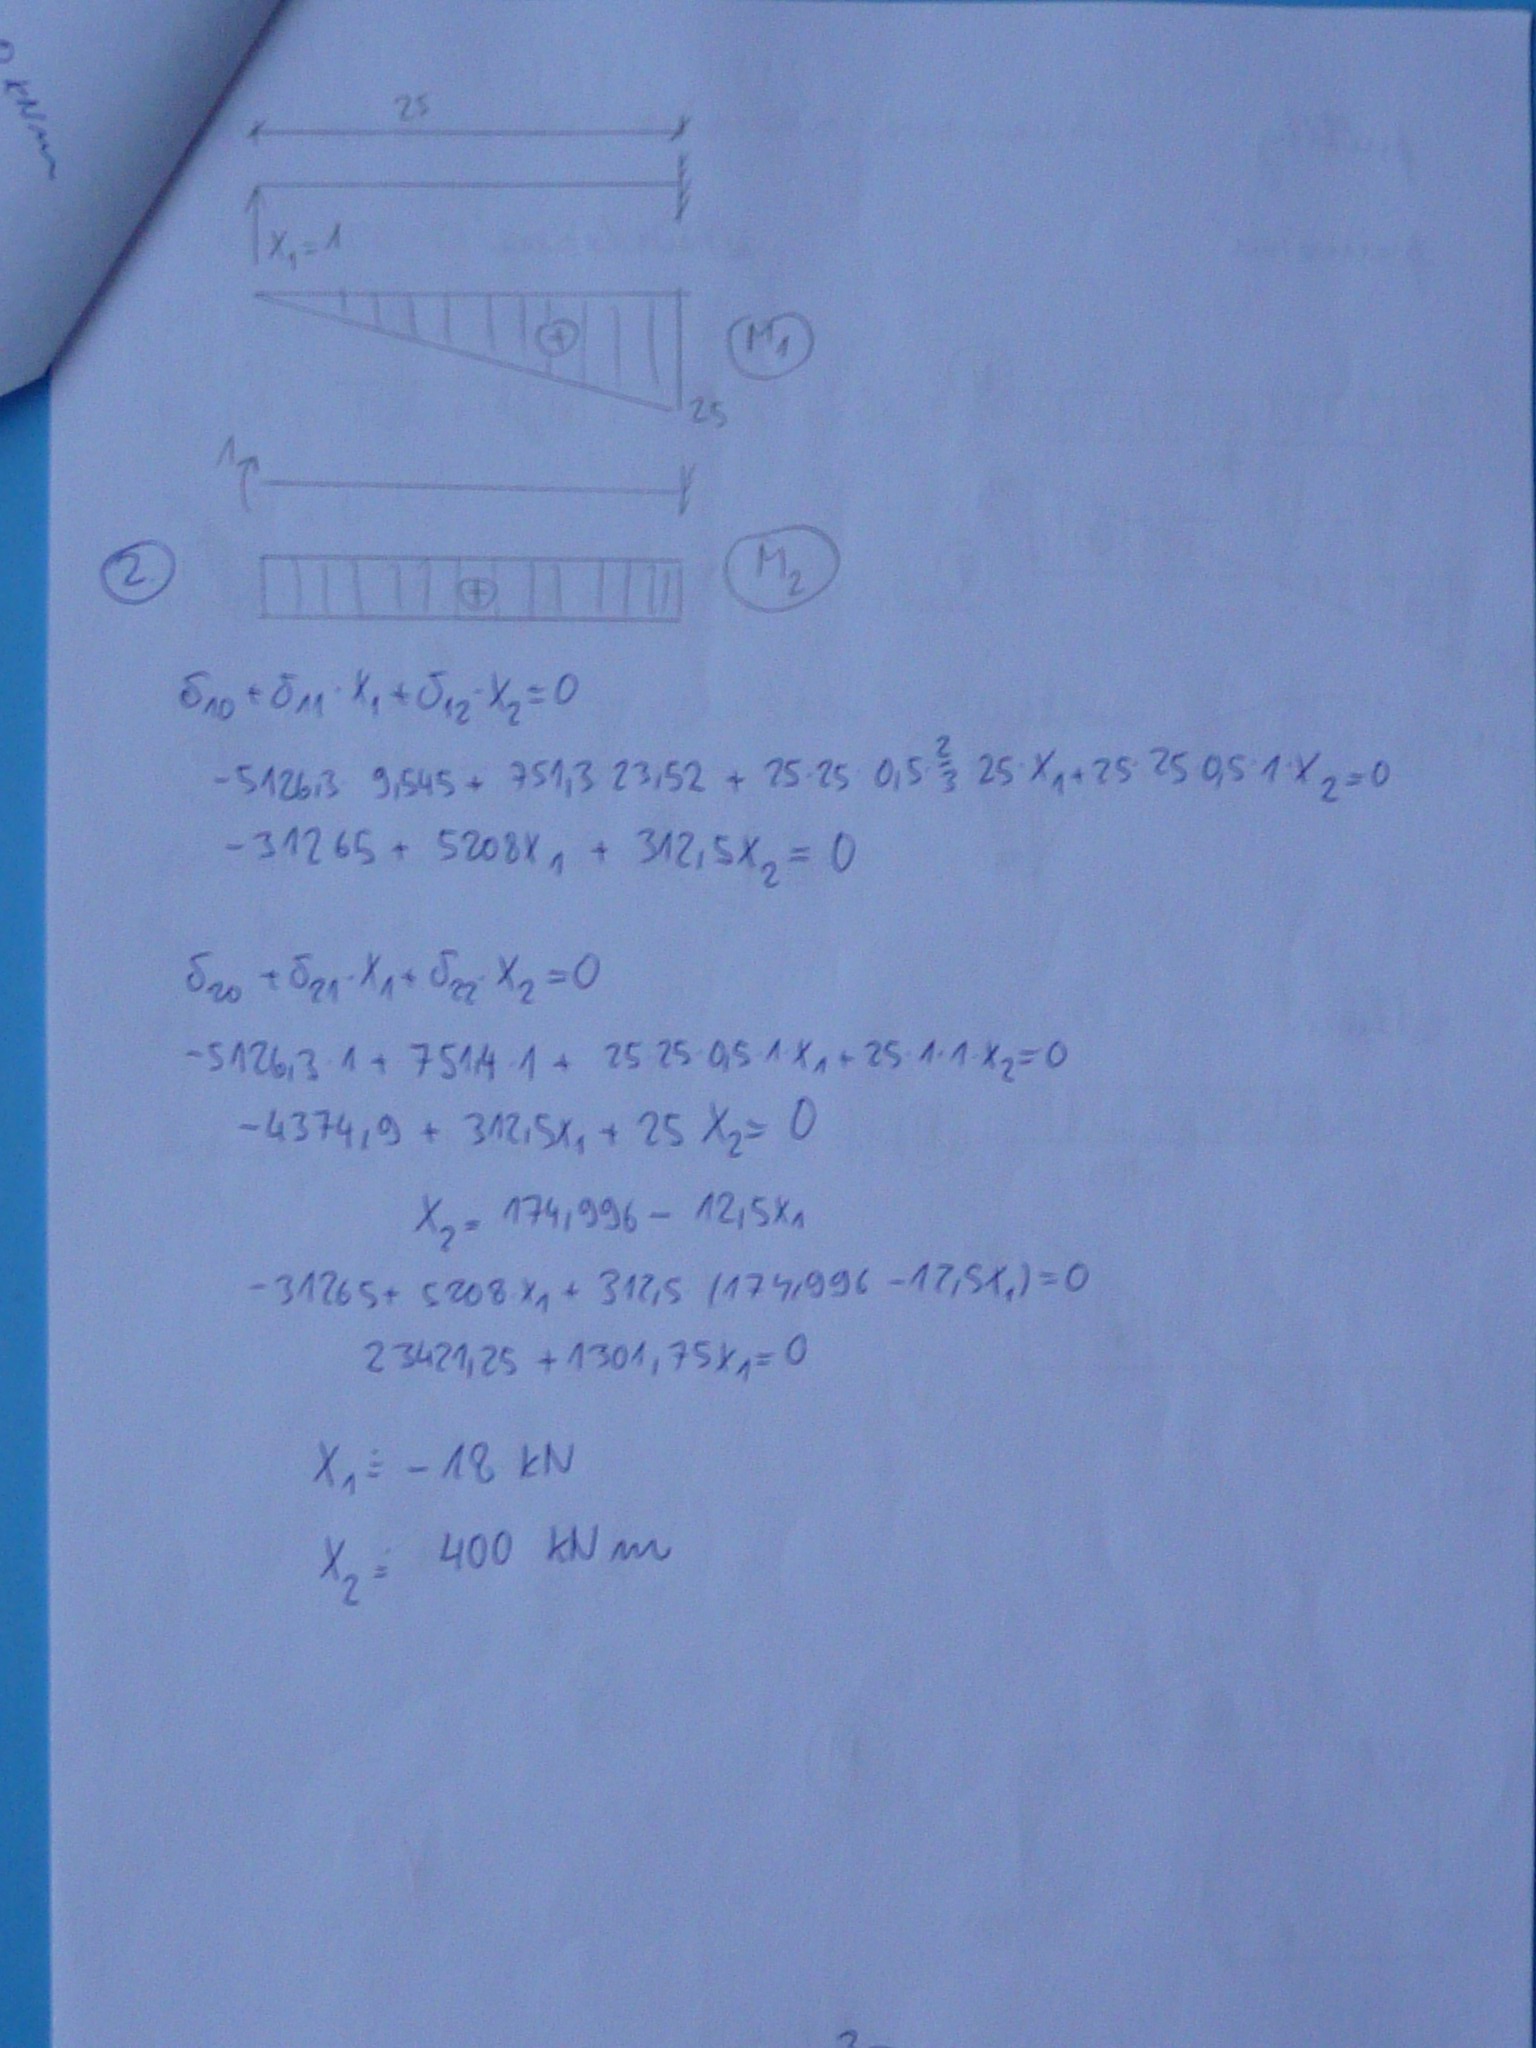 kNm
25
X₁=1
M₁
25
1
2
M₂
δ₁₀+δ₁₁·X₁+δ₁₂·X₂=0
-5126,3 9,545+ 751,3 23,52 + 25·25 0,5·2/3 25·X₁+25·25 0,5·1·X₂=0
-31265+ 5208X₁ + 312,5X₂=0
δ₂₀+δ₂₁·X₁+δ₂₂·X₂=0
-5126,3·1+ 751,4·1+ 25·25·0,5·1·X₁+25·1·1·X₂=0
-4374,9 + 312,5X₁+ 25 X₂= 0
X₂= 174,996- 12,5X₁
-31265+ 5208·X₁+ 312,5 (174,996 -12,5X₁)=0
23421,25 +1301,75X₁=0
X₁≐ -18 kN
X₂≐ 400 kNm